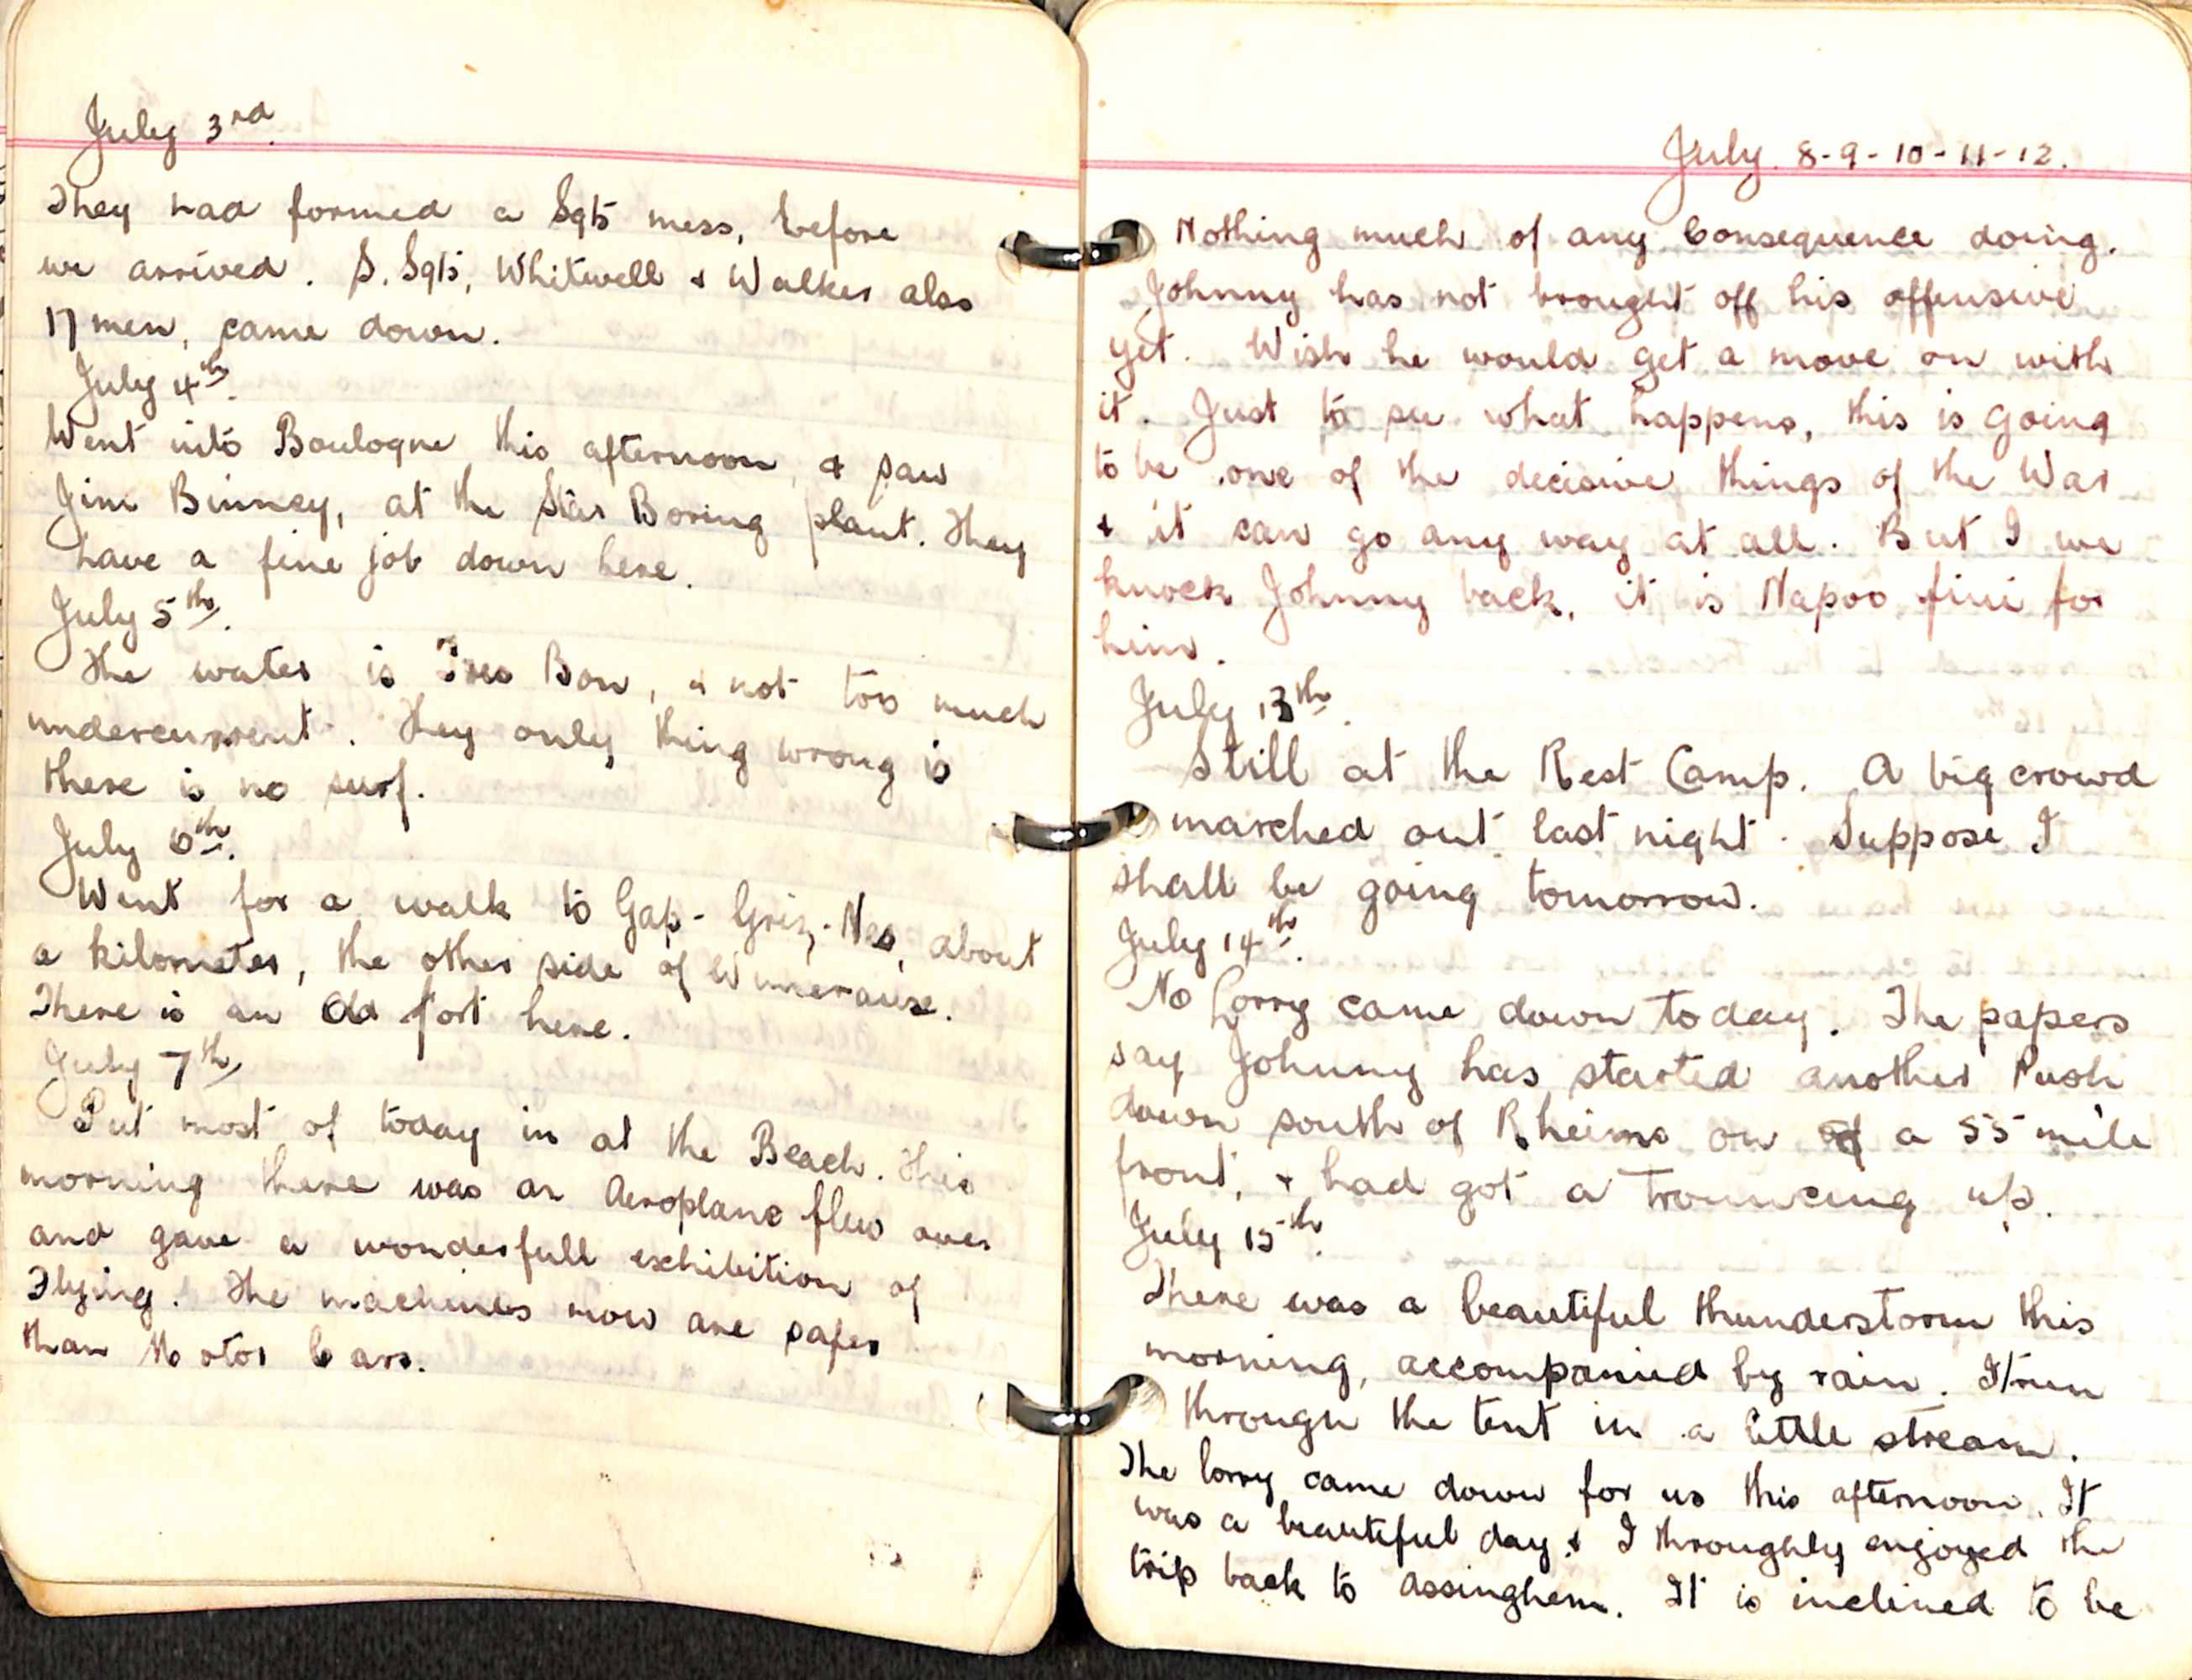 July 3rd.
They had formed a Sgts mess, before
we arrived. S. Sgts, Whitwell & Walker also
17 men, came down.
July 4th.
Went into Boulogne this afternoon, & saw
Jim Binney, at the Star Boring plant. They
have a fine job down here.
July 5th.
The water is Tres Bon, & not too much
undercurrent. They only thing wrong is
there is no surf.
July 6th.
Went for a walk to Gap-Griz-Nes, about
a kilometer, the other side of Wimerause.
There is an Old fort here.
July 7th
Put most of today in at the Beach. This
morning there was an Aeroplane flew over
and gave a wonderfull exhibition of
Flying. The machines now are safer
than Motor Cars.
July. 8-9-10-11-12.
Nothing much of any Consequence doing.
Johnny has not brought off his offensive
yet. Wish he would get a move on with
it. Just to see what happens, this is going
to be one of the decisive things of the War
& it can go any way at all. But I we
knock Johnny back, it is Napoo fini for
him.
July 13th.
Still at the Rest Camp. A big crowd
marched out last night. Suppose I
shall be going tomorrow.
July 14th.
No Lorry came down today. The papers
say Johnny has started another Push
down south of Rheims on a 55 mile
front, & had got a trouncing up.
July 15th.
There was a beautiful thunderstorm this
morning, accompanied by rain. It run
through the tent in a little stream.
The lorry came down for us this afternoon. It
was a beautiful day & I throughly enjoyed the
trip back to Assinghem. It is inclined to be